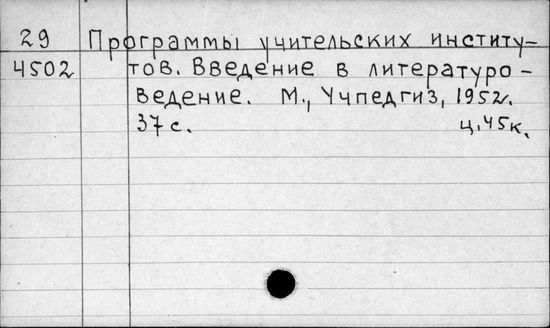 29 Программы учительских институ-
4502 тов. Введение в литературо-
ведение. М., Учпедгиз, 1952.
37 с. ц. 45 к.